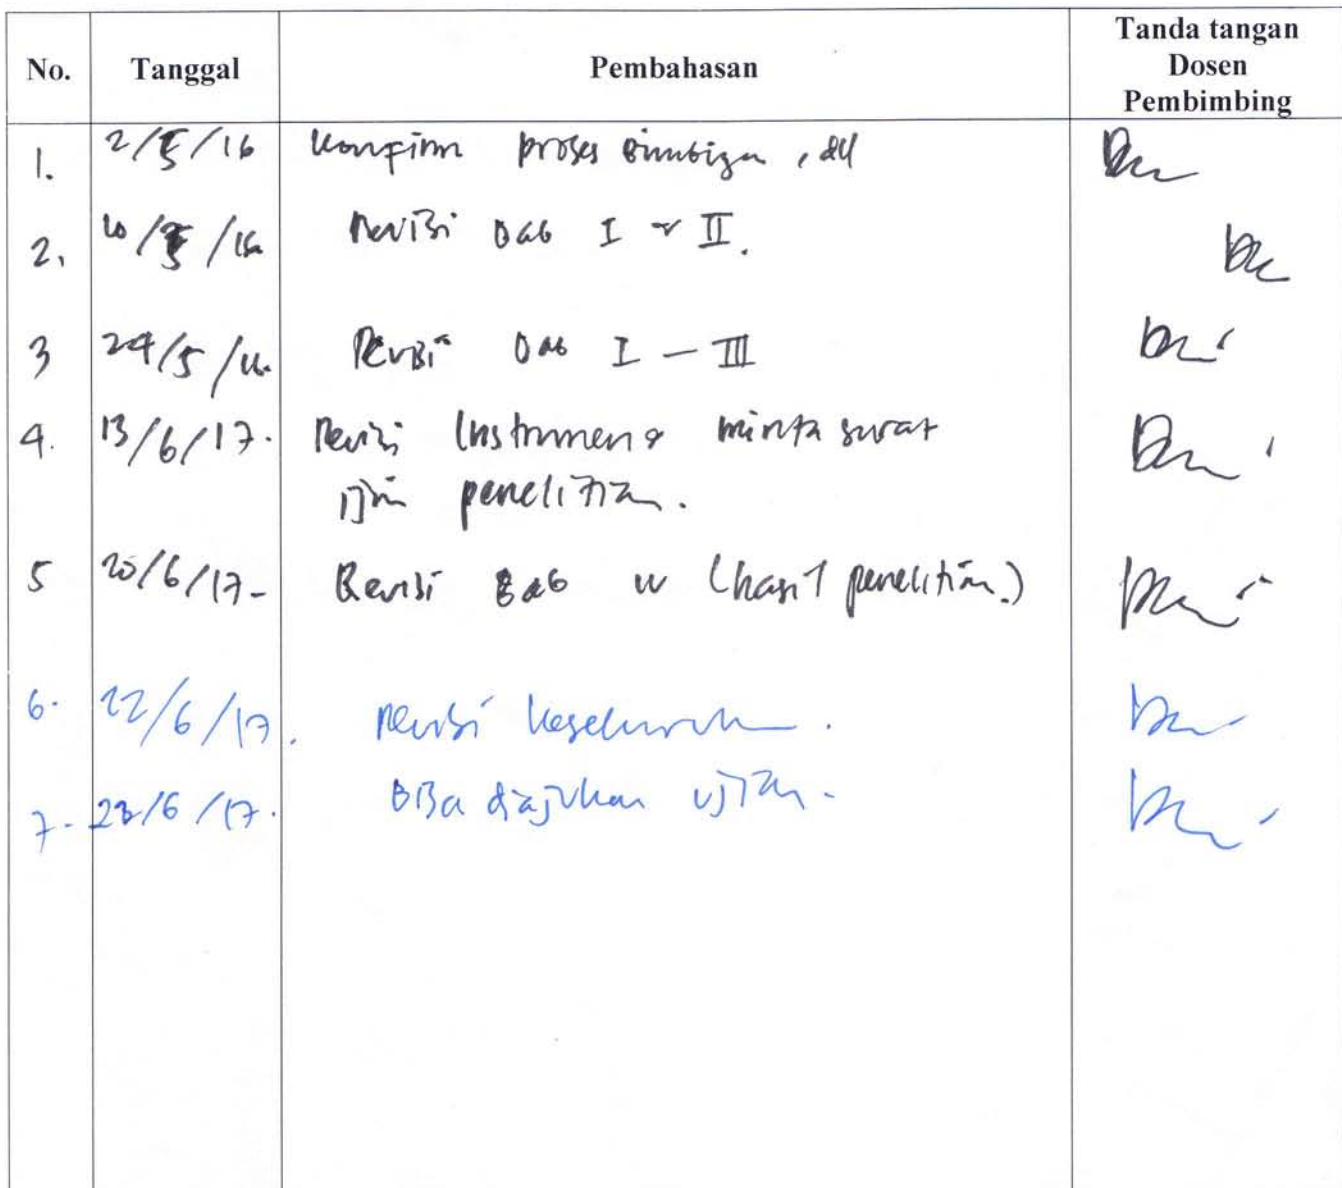 No. Tanggal Pembahasan Tanda tangan
Dosen
Pembimbing
1. 2/5/16 Konfirm proses bimbingan, dll
2. 10/5/16 Revisi Bab I & II.
3 24/5/16 Revisi Bab I - III
4. 13/6/17. Revisi Instrumen & minta surat
ijin penelitian.
5 20/6/17- Revisi Bab IV (hasil penelitian.)
6. 22/6/17. Revisi keseluruhan.
7. 23/6/17. Bisa diajukan ujian.